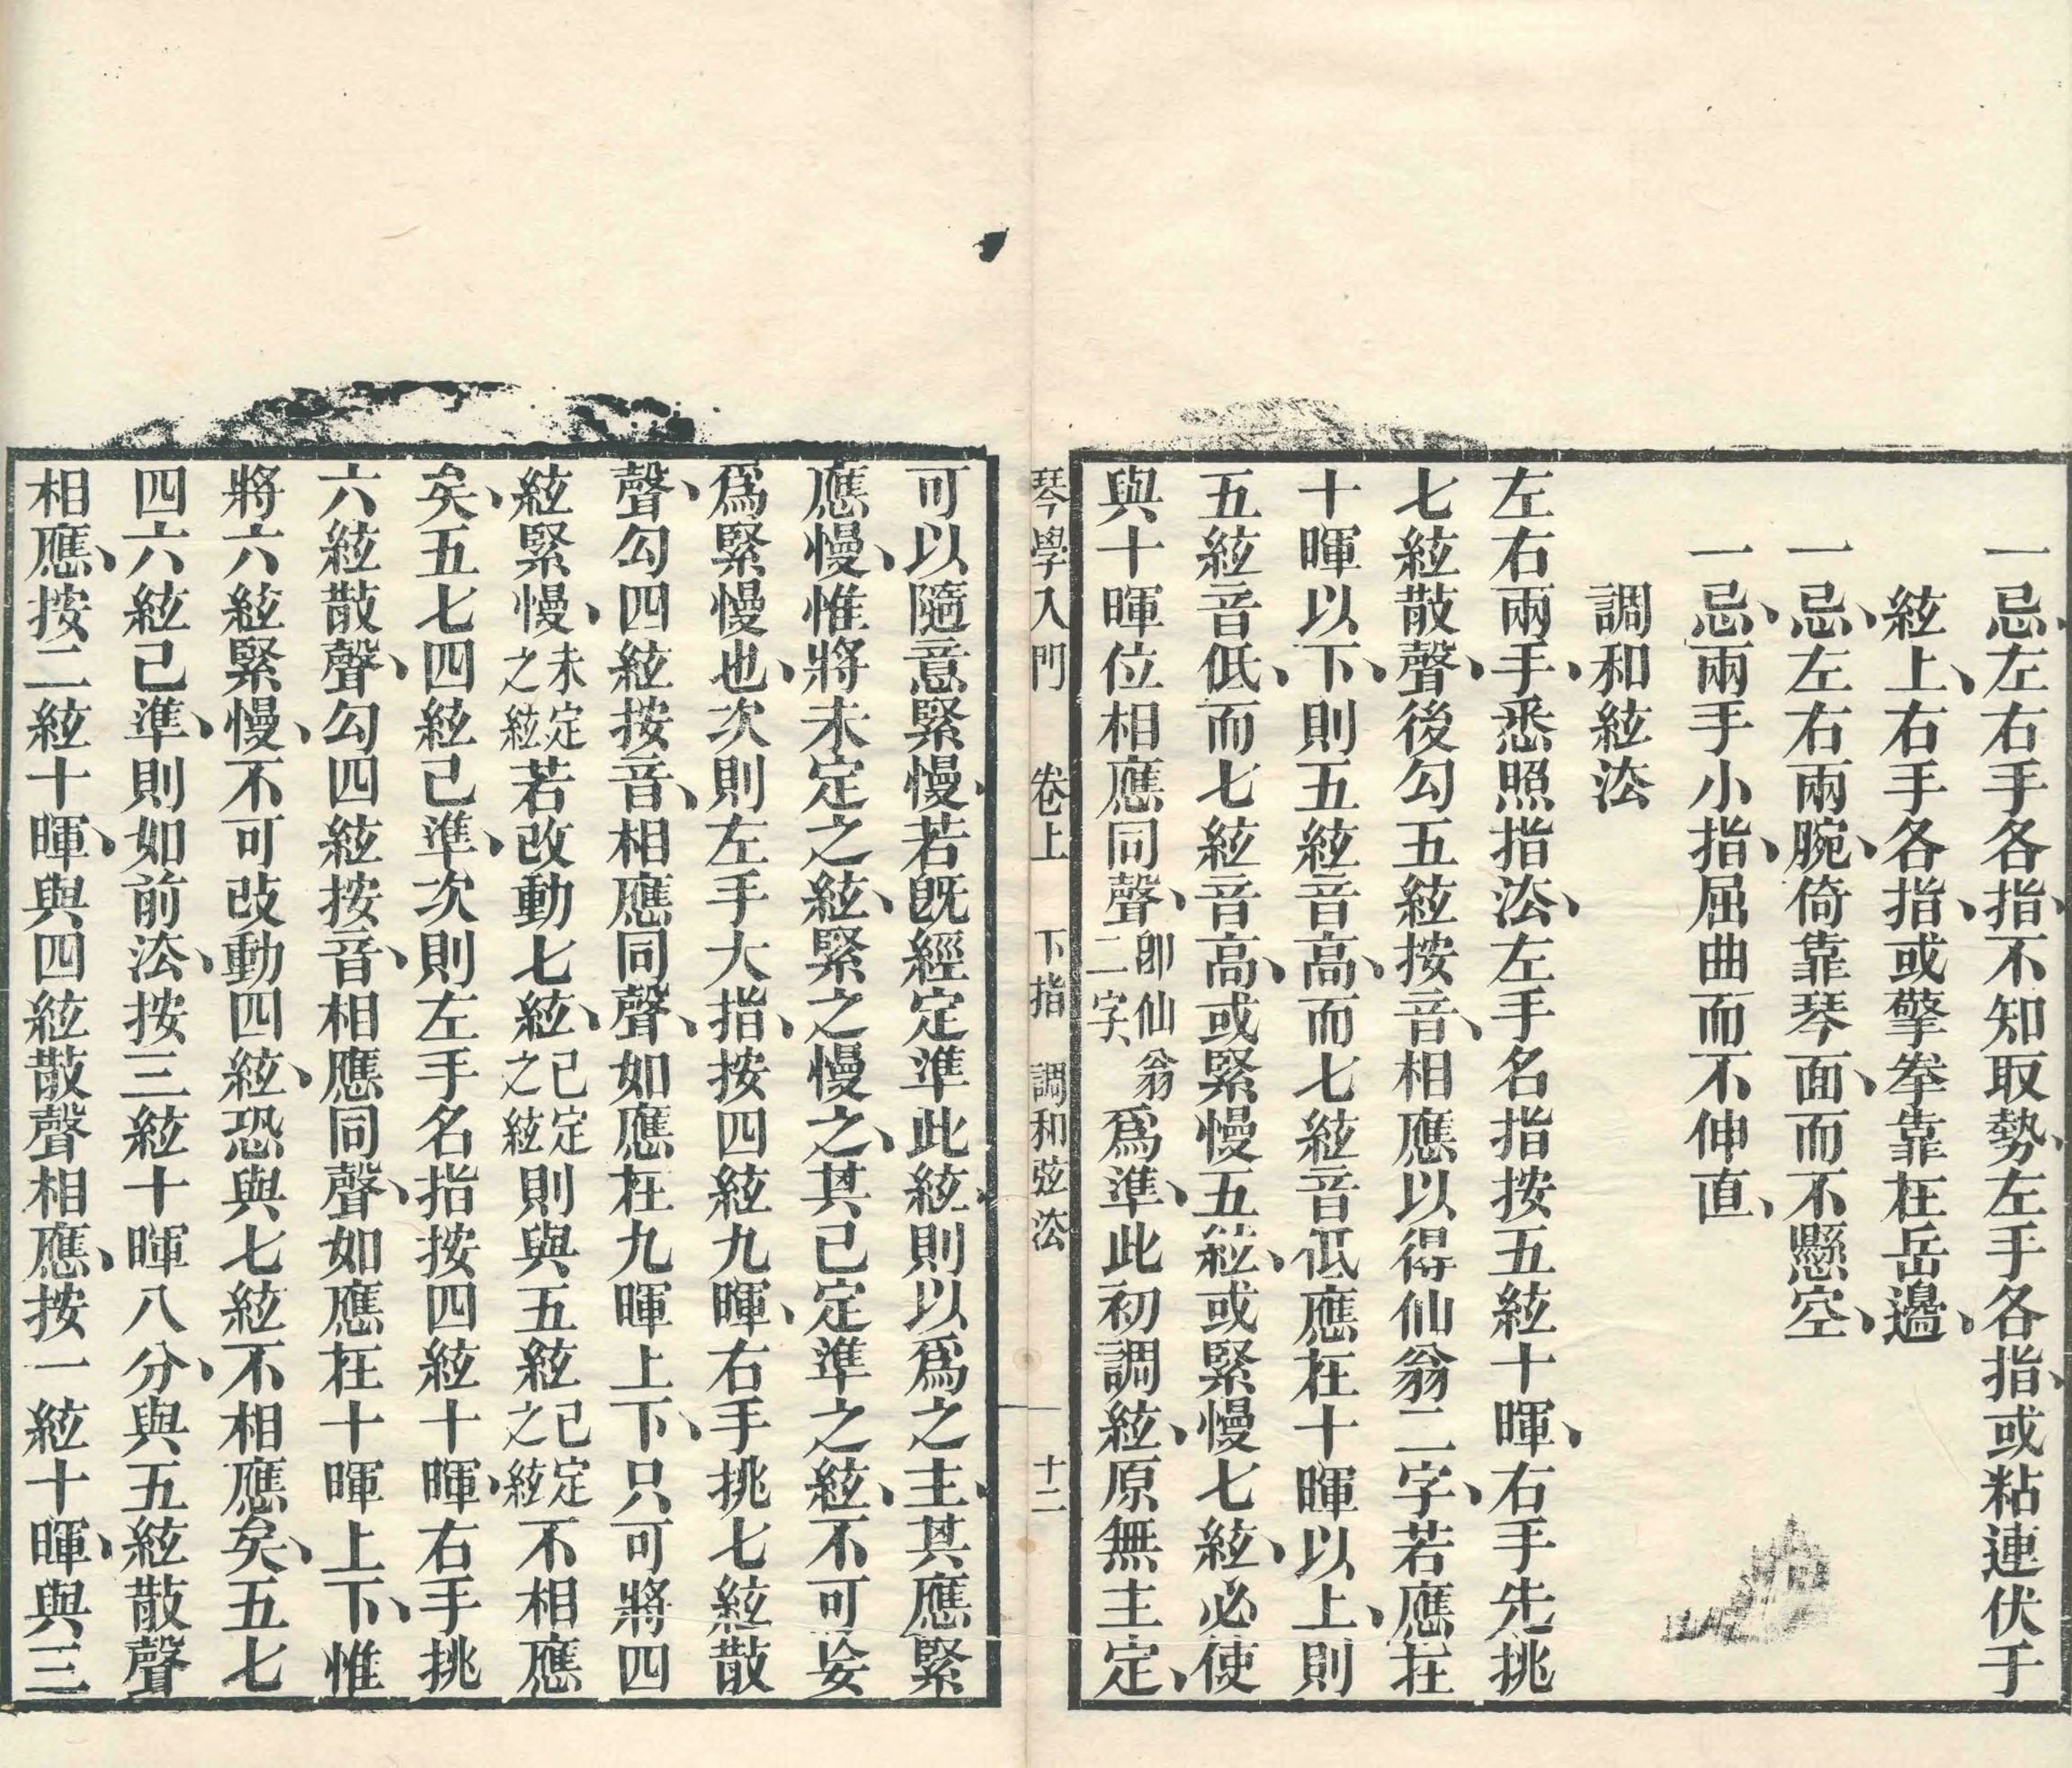 一忌、左右手各指、不知取勢、左手各指、或粘連伏于
絃上、右手各指、或擎拳靠在岳邊、
一忌、左右兩腕、倚靠琴面、而不懸空、
一忌、兩手小指、屈曲而不伸直、
調和絃法
左右兩手、悉照指法、左手名指按五絃十暉、右手先挑
七絃散聲、後勾五絃按音、相應以得仙翁二字、若應在
十暉以下、則五絃音高、而七絃音低應在十暉以上、則
五絃音低、而七絃音高、或緊慢五絃、或緊慢七絃、必使
與十暉位相應同聲、即仙翁二字、爲準、此初調絃、原無主定、
琴學入門 卷上 下指 調和弦法 十二
可以隨意緊慢、若旣經定準此絃、則以爲之主、其應緊
應慢、惟將未定之絃、緊之慢之、其已定準之絃、不可妄
爲緊慢也、次則左手大指、按四絃九暉、右手挑七絃散
聲、勾四絃按音、相應同聲、如應在九暉上下、只可將四
絃緊慢、未定之絃若改動七絃、已定之絃則與五絃已定之絃不相應
矣、五七四絃已準、次則左手名指按四絃十暉、右手挑
六絃散聲、勾四絃按音、相應同聲、如應在十暉上下、惟
將六絃緊慢、不可改動四絃、恐與七絃不相應矣、五七
四六絃已準、則如前法、按三絃十暉八分、與五絃散聲
相應、按二絃十暉、與四絃散聲相應、按一絃十暉、與三